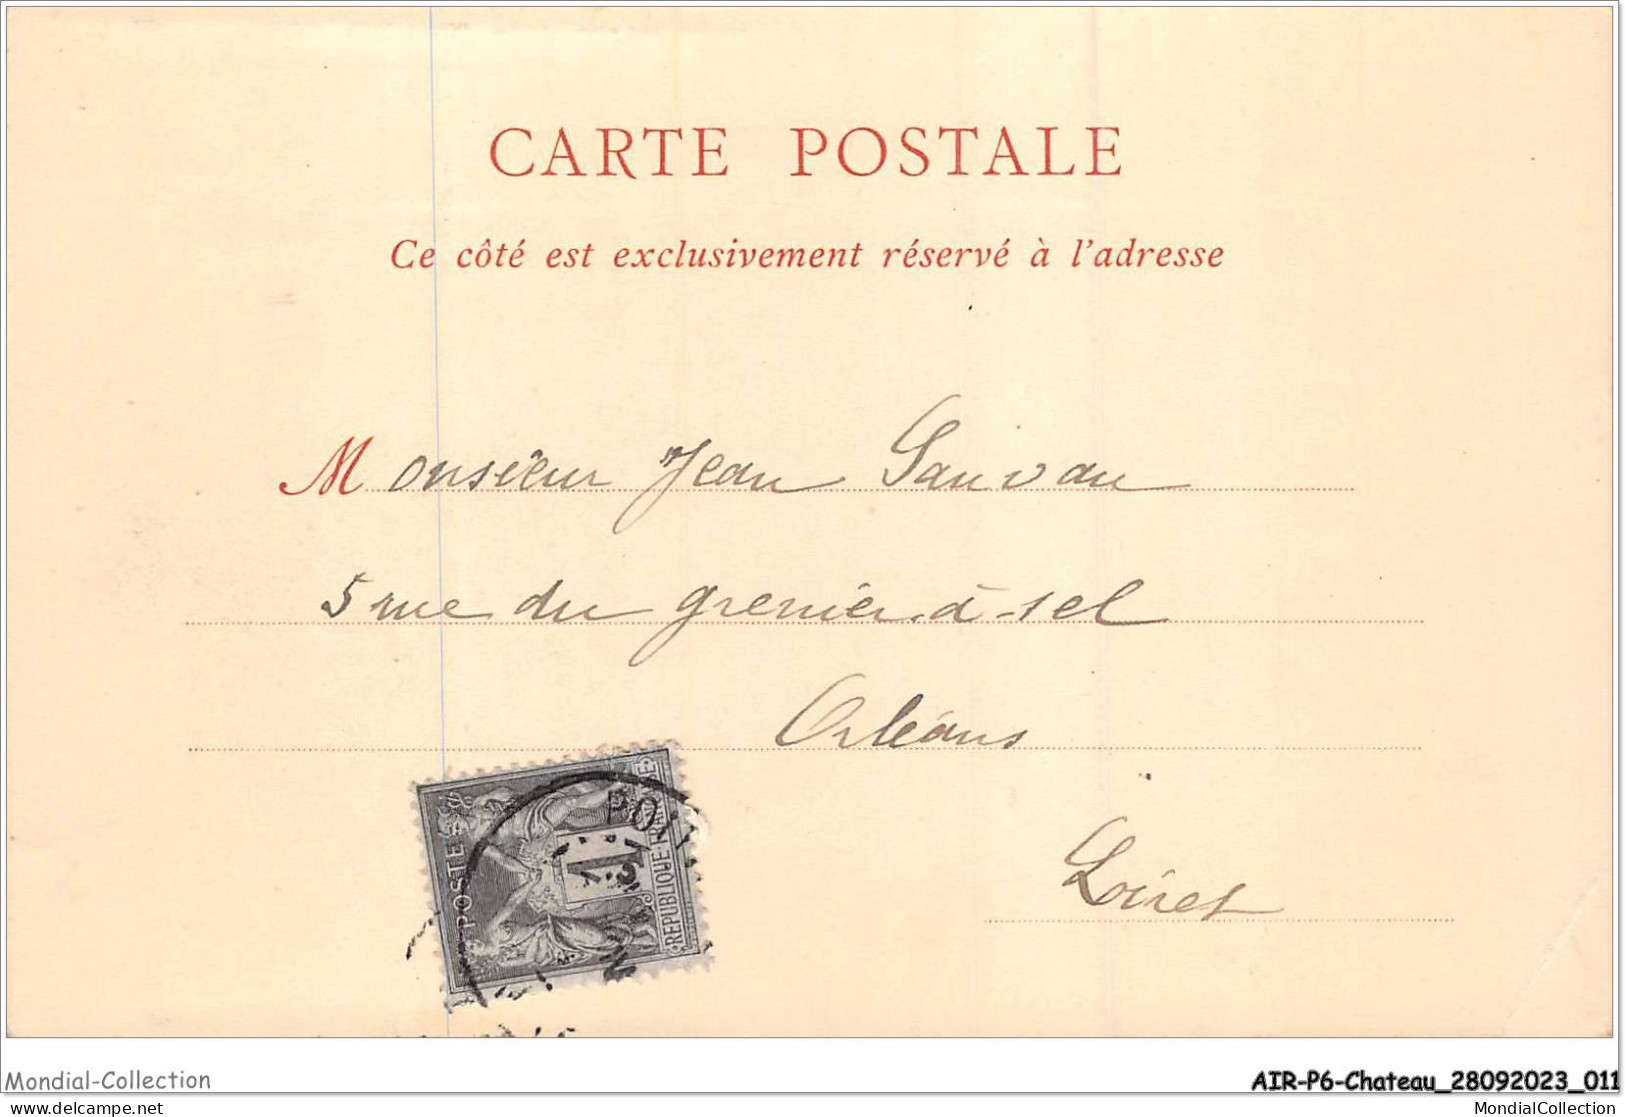 CARTE POSTALE
Ce côté est exclusivement réservé à l'adresse
Monsieur Jean Sauvau
5 rue du grenier-à-sel
Orléans
Loiret
POSTES
1
REPUBLIQUE FRANÇAISE
Mondial-Collection
AIR-P6-Chateau_28092023_011
delcampe.net
MondialCollection